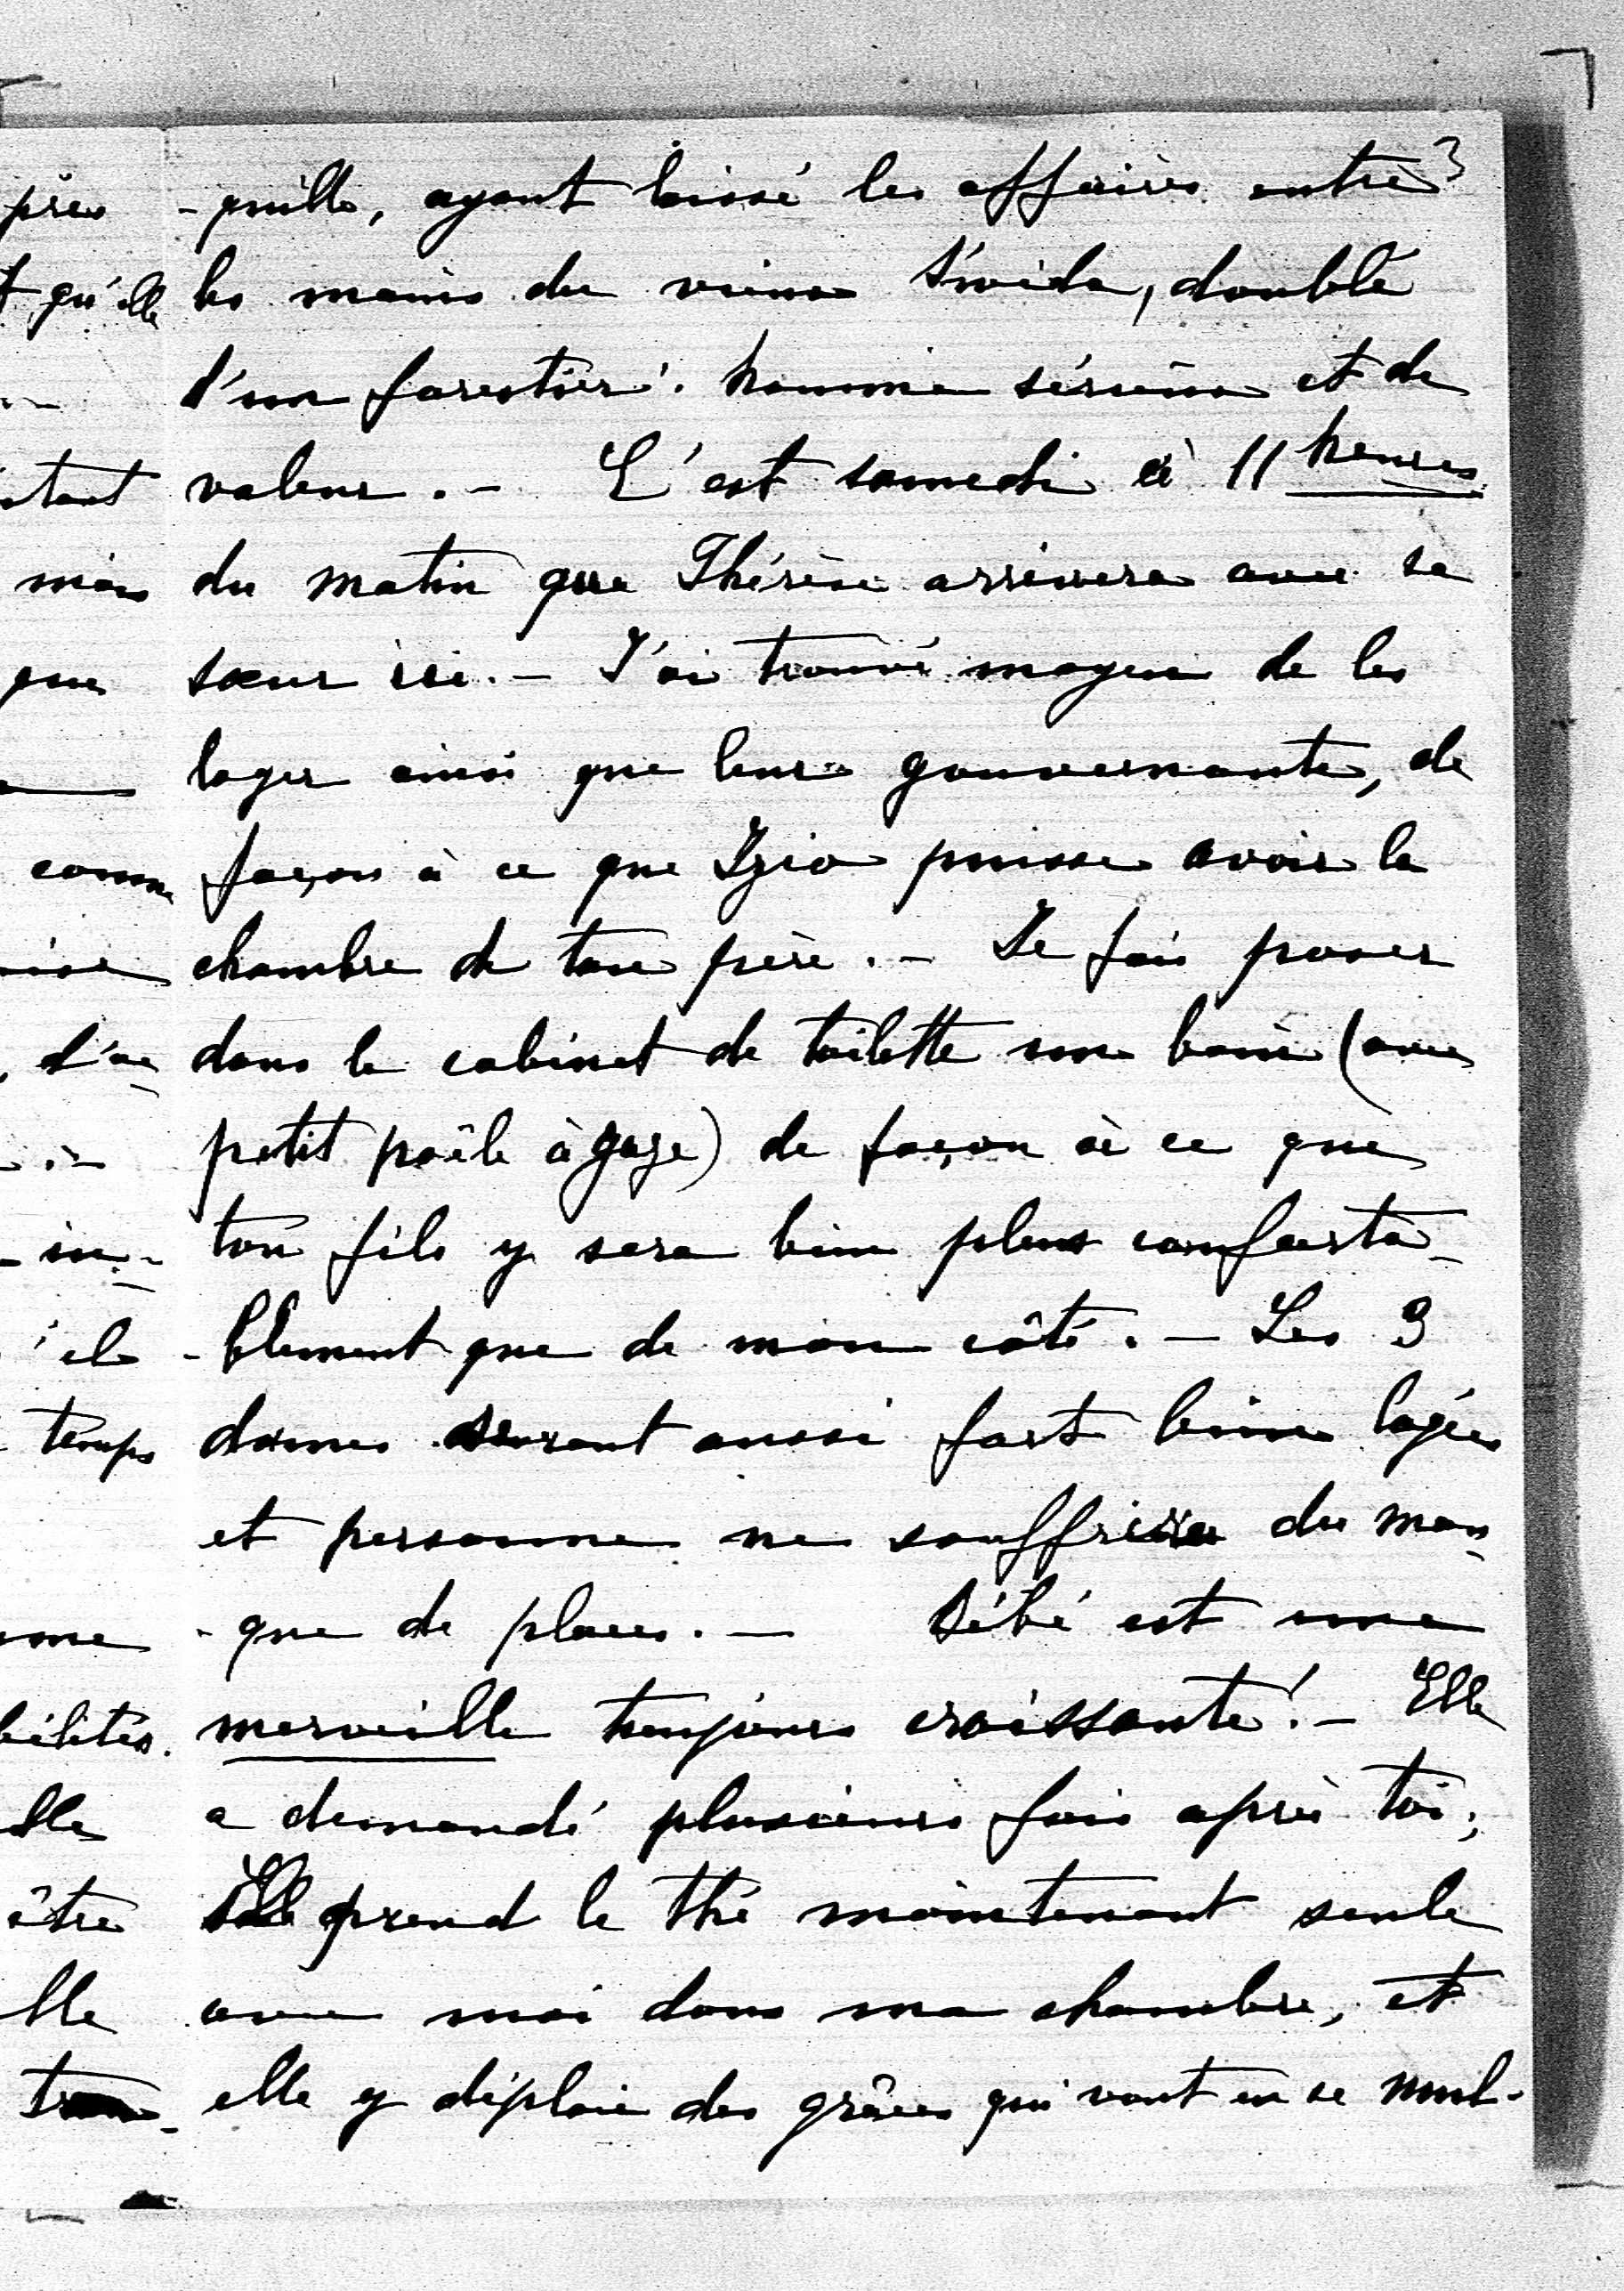 3
-quille, ayant laissé les affaires entre
les mains du vieux Swida, doublé
d'un forestier. homme sérieux et de
valeur. - C'est samedi à 11 heures
du matin que Thérèse arrivera avec sa
sœur ici. - J'ai trouvé moyen de les
loger ainsi que leur gouvernante, de
façon à ce que Izio puisse avoir la
chambre de ton père. - Je fais poser
dans le cabinet de toilette un bain (avec
petit poêle à gaze) de façon à ce que
ton fils y sera bien plus conforta-
-blement que de mon côté. - Les 3
dames seront aussi fort bien logées
et personne ne souffrira du man-
-que de place. - Bébé est une
merveille toujours croissante! - Elle
a demandé plusieurs fois après toi;
Elle prend le thé maintenant seule
avec moi dans ma chambre, et
elle y déploie des grâces qui vont en se mul-